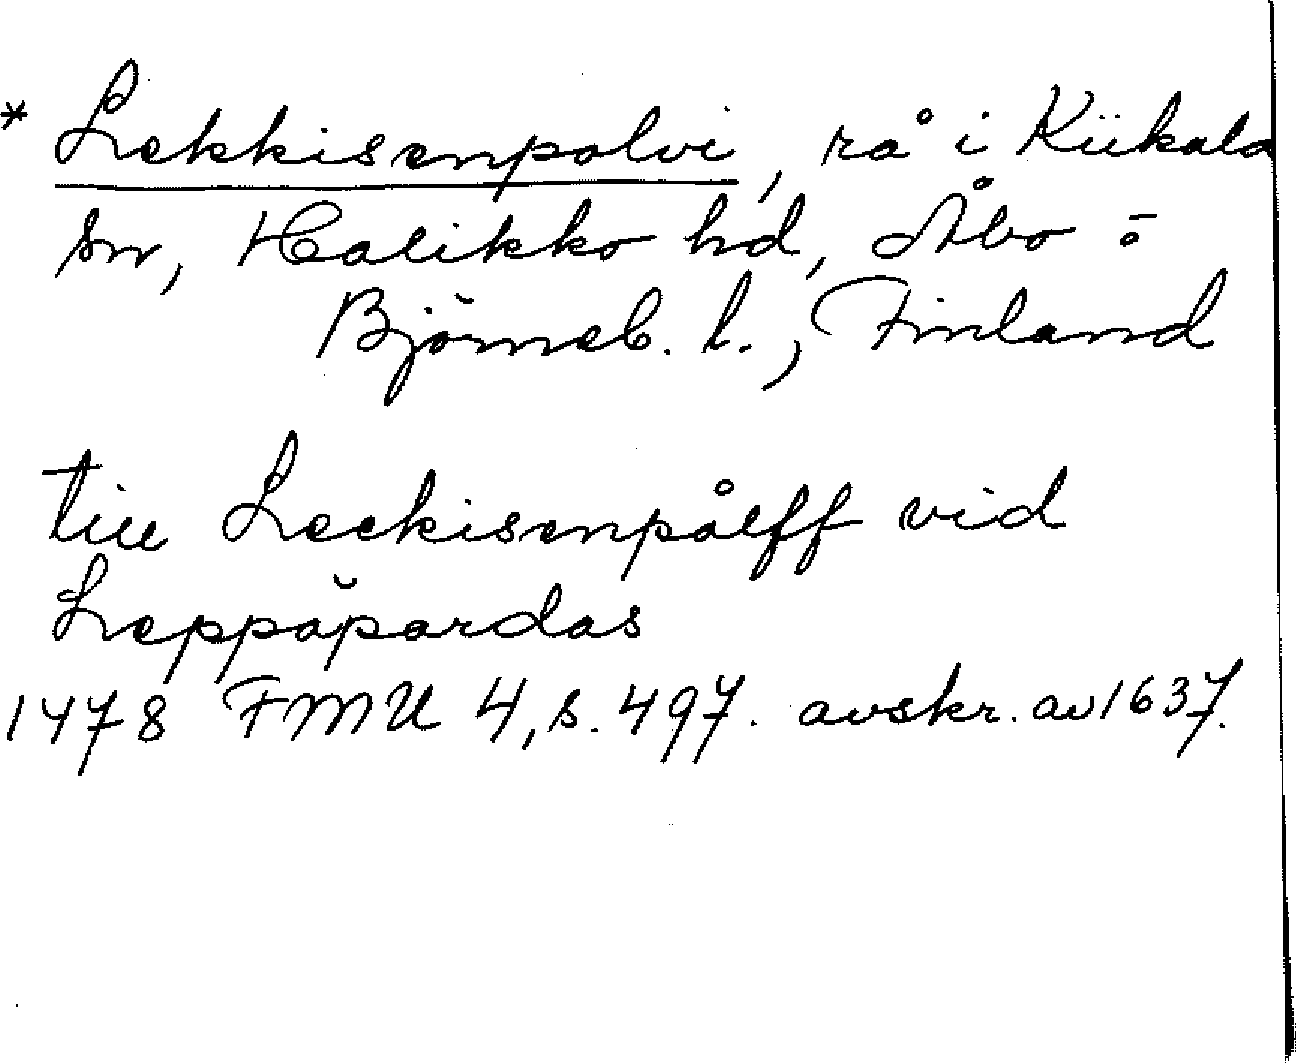 * Lekkisenpolvi, rå i Kiikala
sn, Halikko hd, Åbo o
Björneb. l., Finland
till Leckisenpålff vid
Leppäpardas
1478 FMU 4, s. 497. avskr. av 1637.